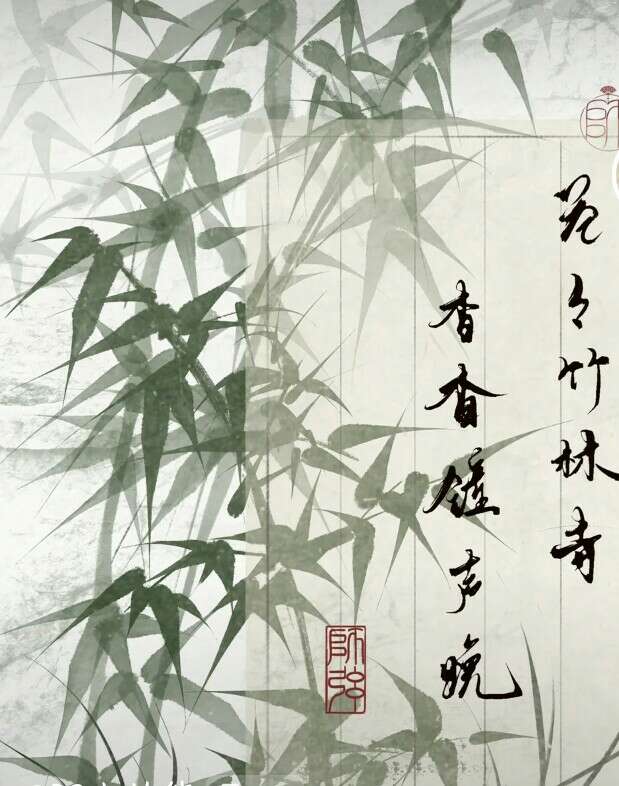 苍々竹林寺
杳杳鐘声晚